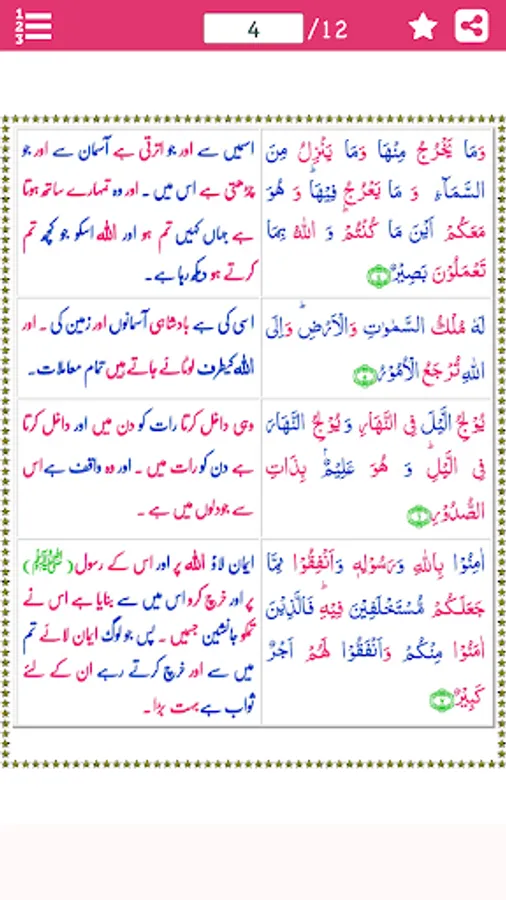 1
2
3
4 /12
وَمَا يَخْرُجُ مِنْهَا وَمَا يَنْزِلُ مِنَ
السَّمَآءِ وَ مَا يَعْرُجُ فِيْهَا ؕ وَ هُوَ
مَعَكُمْ اَيْنَ مَا كُنْتُمْ ؕ وَ اللّٰهُ بِمَا
تَعْمَلُوْنَ بَصِيْرٌ ۴
اسمیں سے اور جو اترتی ہے آسمان سے اور جو
چڑھتی ہے اس میں ۔ اور وہ تمہارے ساتھ ہوتا
ہے جہاں کہیں تم ہو اور اللہ اسکو جو کچھ تم
کرتے ہو دیکھ رہا ہے۔
لَهٗ مُلْكُ السَّمٰوٰتِ وَالْاَرْضِ ؕ وَاِلَى
اللّٰهِ تُرْجَعُ الْاُمُوْرُ ۵
اسی کی ہے بادشاہی آسمانوں اور زمین کی ۔ اور
اللہ کیطرف لوٹائے جاتے ہیں تمام معاملات۔
يُوْلِجُ الَّيْلَ فِي النَّهَارِ وَ يُوْلِجُ النَّهَارَ
فِي الَّيْلِ ؕ وَ هُوَ عَلِيْمٌۢ بِذَاتِ
الصُّدُوْرِ ۶
وہی داخل کرتا رات کو دن میں اور داخل کرتا
ہے دن کو رات میں ۔ اور وہ واقف ہے اس
سے جو دلوں میں ہے ۔
اٰمِنُوْا بِاللّٰهِ وَرَسُوْلِهٖ وَاَنْفِقُوْا مِمَّا
جَعَلَكُمْ مُّسْتَخْلَفِيْنَ فِيْهِ ؕ فَالَّذِيْنَ
اٰمَنُوْا مِنْكُمْ وَاَنْفَقُوْا لَهُمْ اَجْرٌ
كَبِيْرٌ ۷
ایمان لاؤ اللہ پر اور اس کے رسول (ﷺ)
پر اور خرچ کرو اس میں سے بنایا ہے اس نے
تمکو جانشین جسمیں ۔ پس جو لوگ ایمان لائے تم
میں سے اور خرچ کرتے رہے ان کے لئے
ثواب ہے بہت بڑا ۔